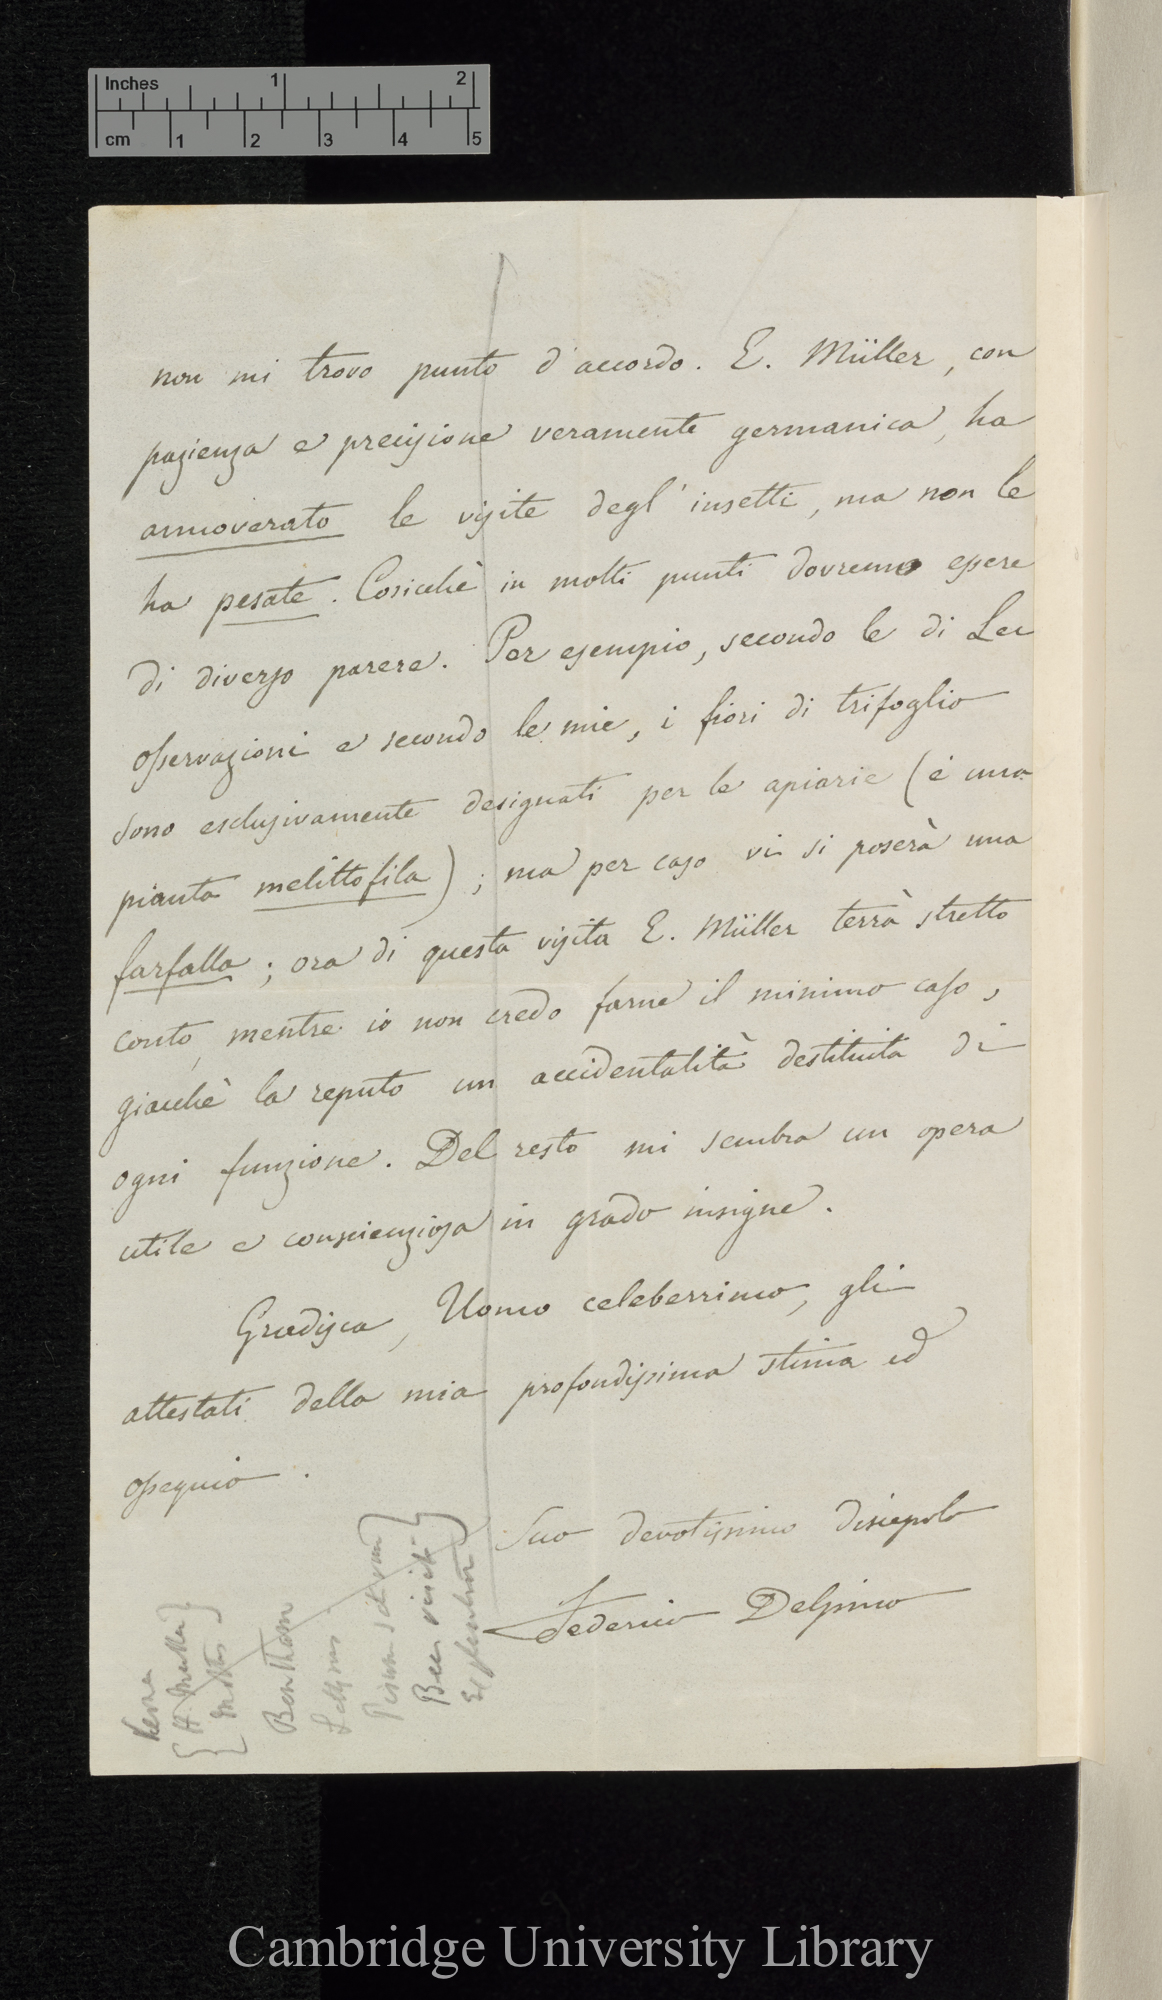 Inches 1 2
cm 1 2 3 4 5
non mi trovo punto d'accordo. E. Müller, con
pazienza e precisione veramente germanica, ha
annoverato le visite degl'insetti, ma non le
ha pesate. Cosicchè in molti punti dovremo essere
di diverso parere. Per esempio, secondo le di Lei
osservazioni e secondo le mie, i fiori di trifoglio
sono esclusivamente designati per le apiarie (è una
pianta melittofila); ma per caso vi si poserà una
farfalla; ora di questa visita E. Müller terrà stretto
conto, mentre io non credo farne il minimo caso,
giacchè la reputo un accidentalità destituita di
ogni funzione. Del resto mi sembra un opera
utile e conscienziosa in grado insigne.
Gradisca, Uomo celeberrimo, gli
attestati della mia profondissima stima ed
ossequio.
Suo devotissimo discepolo
Federico Delpino
Kerner
{H. Muller}
{Moths}
Bentham
Bees visit
Cambridge University Library